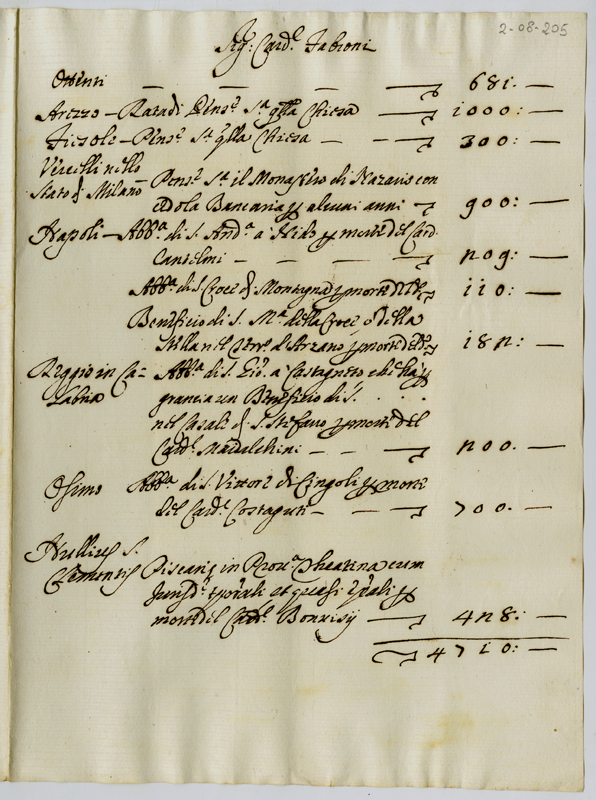 2-08-205
Sig.r Card.e Fabroni
Ottenti — — — 681: —
Arezzo — Rata di Pens.e S.a q.lla Chiesa 1000: —
Fiesole — Pens.e S.a q.lla Chiesa — 300: —
Vercelli nello
Stato di Milano — Pens.e S.a il Monastero di Nazario con
Cedola Bancaria p alcuni anni 900: —
Napoli — Abb.a di S. And.a a Nido p morte del Card.
Cantelmi — — — — n09: —
Abb.a di S. Croce di p morte del 110: —
Benefício di S. M.a della Croce o della
Stella nel di Arzano p morte del 18n: —
Reggio in Ca=
labria Abb.a di S. Gio. a Castagneto e che ha p
grancia un Beneficio di S. . . .
nel Casale di S. Stefano p morte del
Card.e Maidalchini — — n00. —
Osimo Abb.a di S. Vittore di Cingoli p morte
del Card.e Costaguti — — 700. —
Nullius S.
Clementis Piscarie in Prov.a Theatina cum
Jurisd.e t'porali et quasi p
morte del Card.e Bonvisij 4n8: —
4710: —